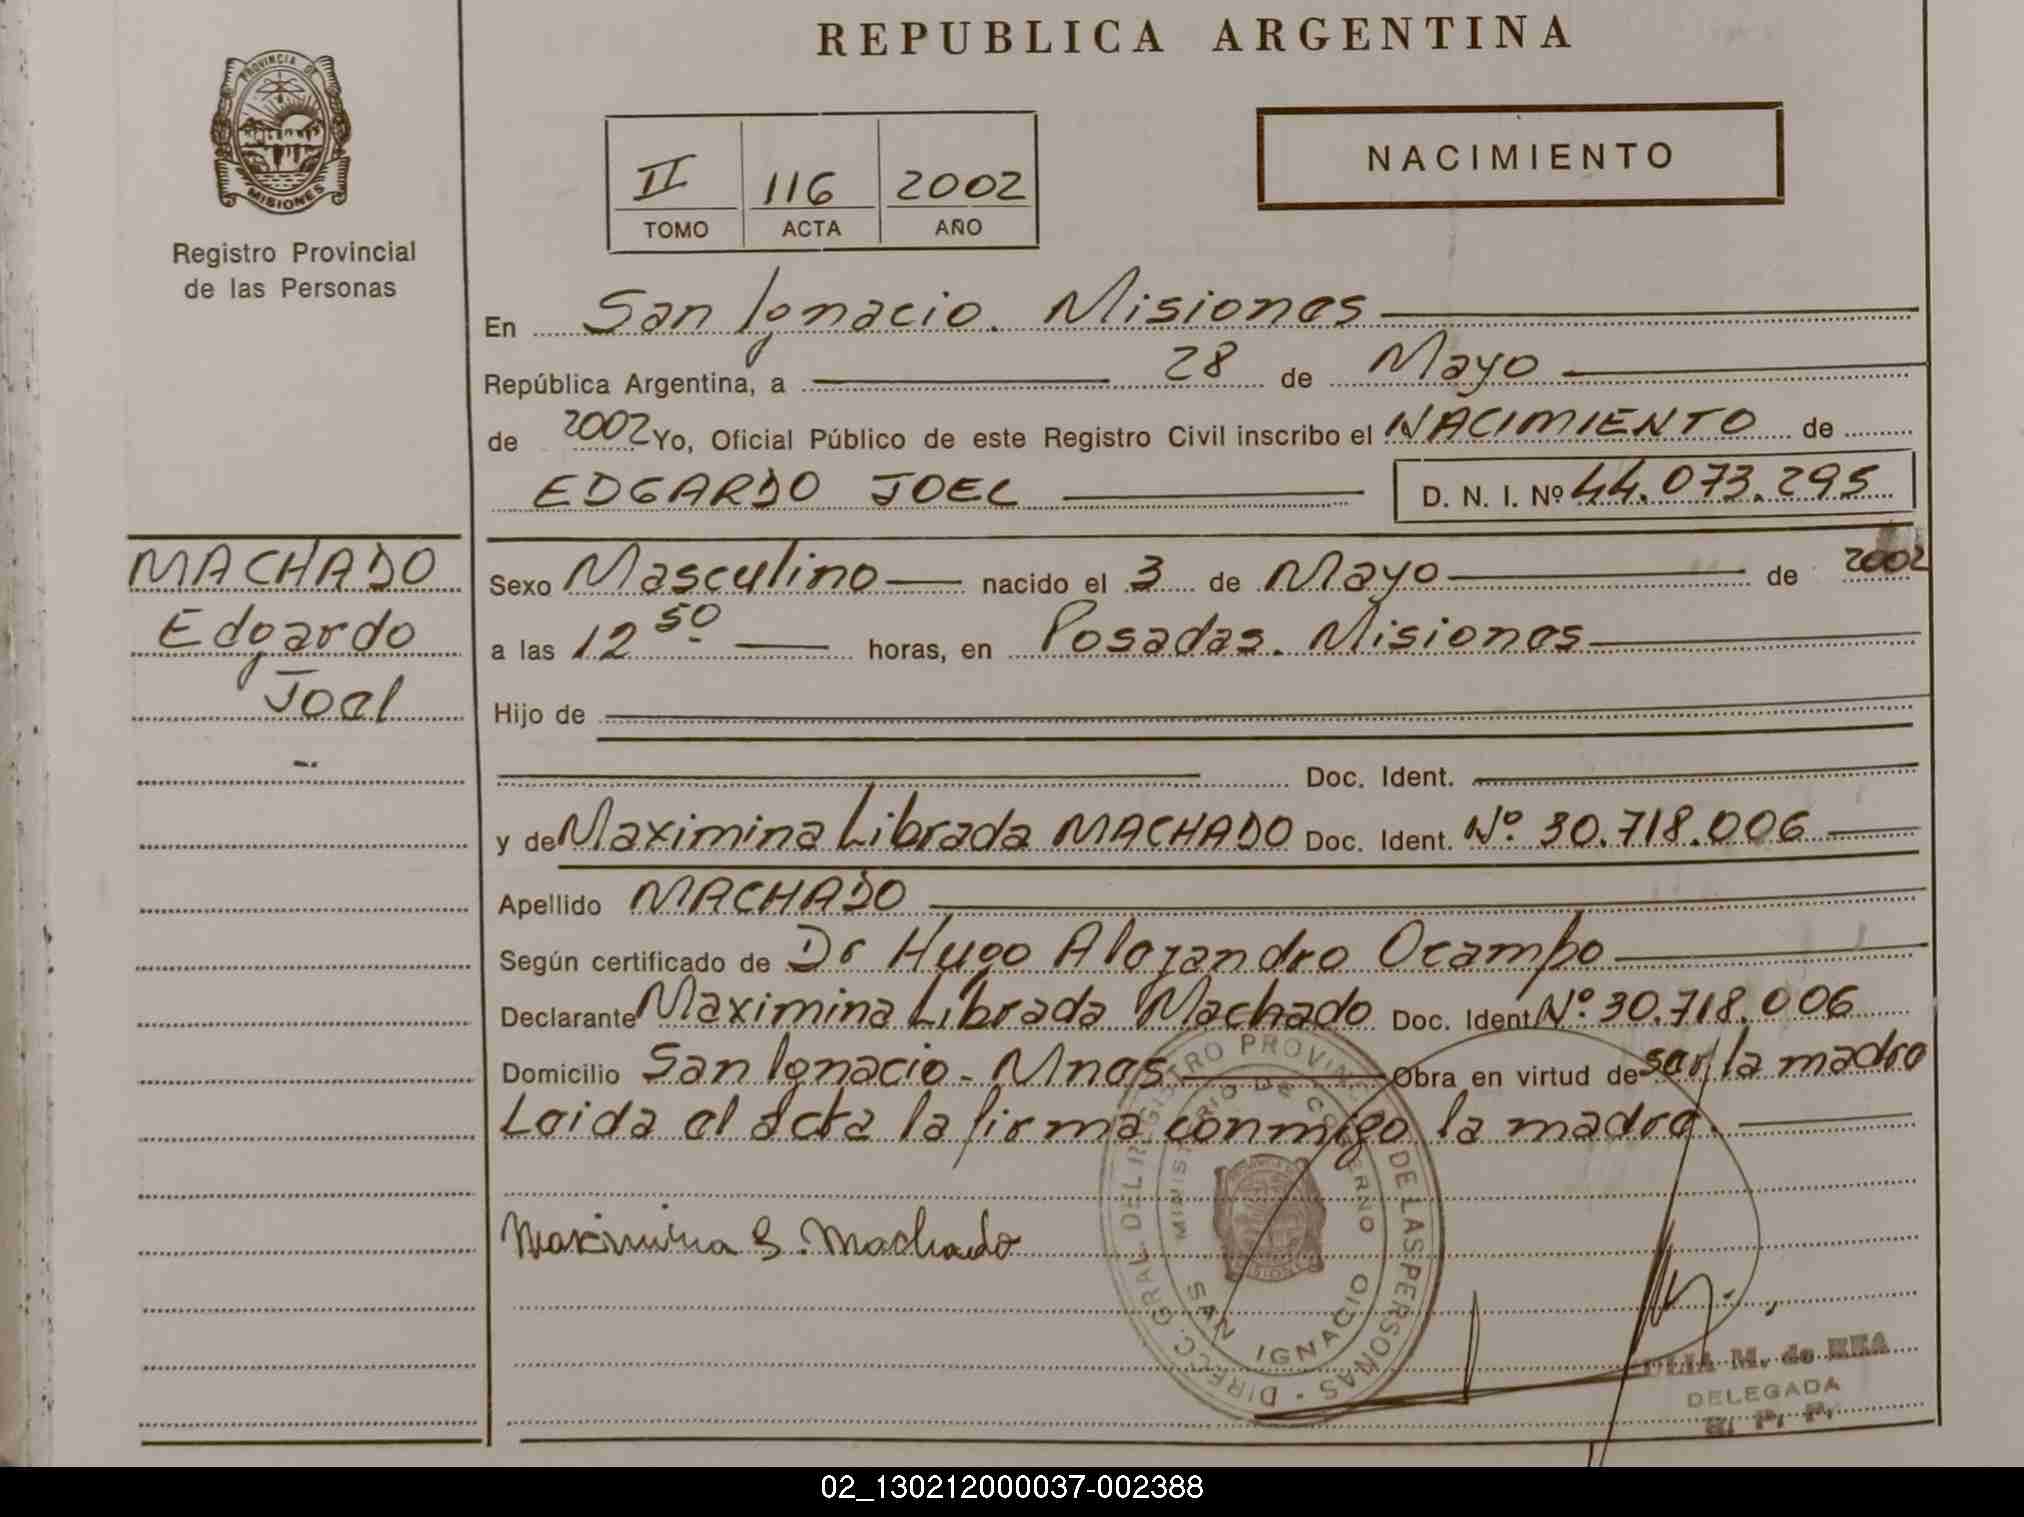 REPUBLICA ARGENTINA
PROVINCIA DE
MISIONES
Registro Provincial
de las Personas
II 116 2002
TOMO ACTA AÑO
NACIMIENTO
En San Ignacio. Misiones
República Argentina, a 28 de Mayo
de 2002 Yo, Oficial Público de este Registro Civil inscribo el NACIMIENTO de
EDGARDO JOEL D. N. I. Nº 44.073.295
MACHADO
Edgardo
Joel
Sexo Masculino nacido el 3 de Mayo de 2002
a las 12 50 horas, en Posadas. Misiones
Hijo de
Doc. Ident.
y de Maximina Librada MACHADO Doc. Ident. Nº 30.718.006
Apellido MACHADO
Según certificado de Dr Hugo Alejandro Ocampo
Declarante Maximina Librada Machado Doc. Ident Nº 30.718.006
Domicilio San Ignacio - Mnes Obra en virtud de ser la madre
Leida el acta la firma conmigo la madre.
Maximina L. Machado
DIRECC. GRAL. DEL REGISTRO PROVINC. DE LAS PERSONAS
MINISTERIO DE GOBIERNO
SAN IGNACIO
M. de REA
DELEGADA
R. P. P.
02_130212000037-002388